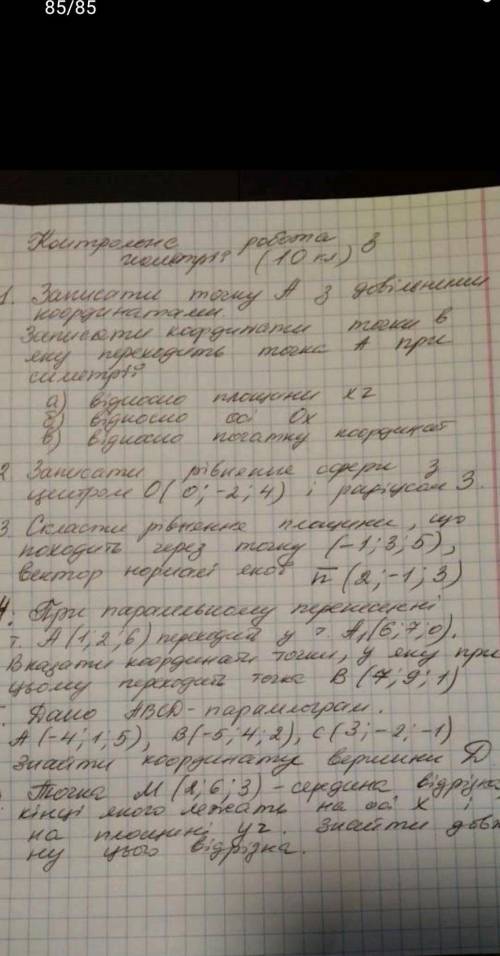 85/85
Контрольна робота з
геометрії (10 кл)
1. Записати точку A з довільними
координатами.
Записати координати точки в
яку переходить точка A при
симетрії
а) відносно площини xz
б) відносно осі Ox
в) відносно початку координат
2 Записати рівняння сфери з
центром O(0;-2;4) і радіусом 3.
3 Скласти рівняння площини, що
походить через точку (-1;3;5),
вектор нормалі якої n̅ (2;-1;3)
4. При паралельному перенесенні
т. A(1;2;6) переходить у т. A₁(6;7;0).
Вказати координати точки, у яку при
цьому переходить точка B (7;9;1)
Дано ABCD-паралограм.
A(-4;1;5), B(-5;4;2), C(3;-2;-1)
Знайти координату вершини D
Точка M(2;6;3)-середина відрізка
кінці якого лежать на осі X і
на площині yz. Знайти довж
ну цього відрізка.